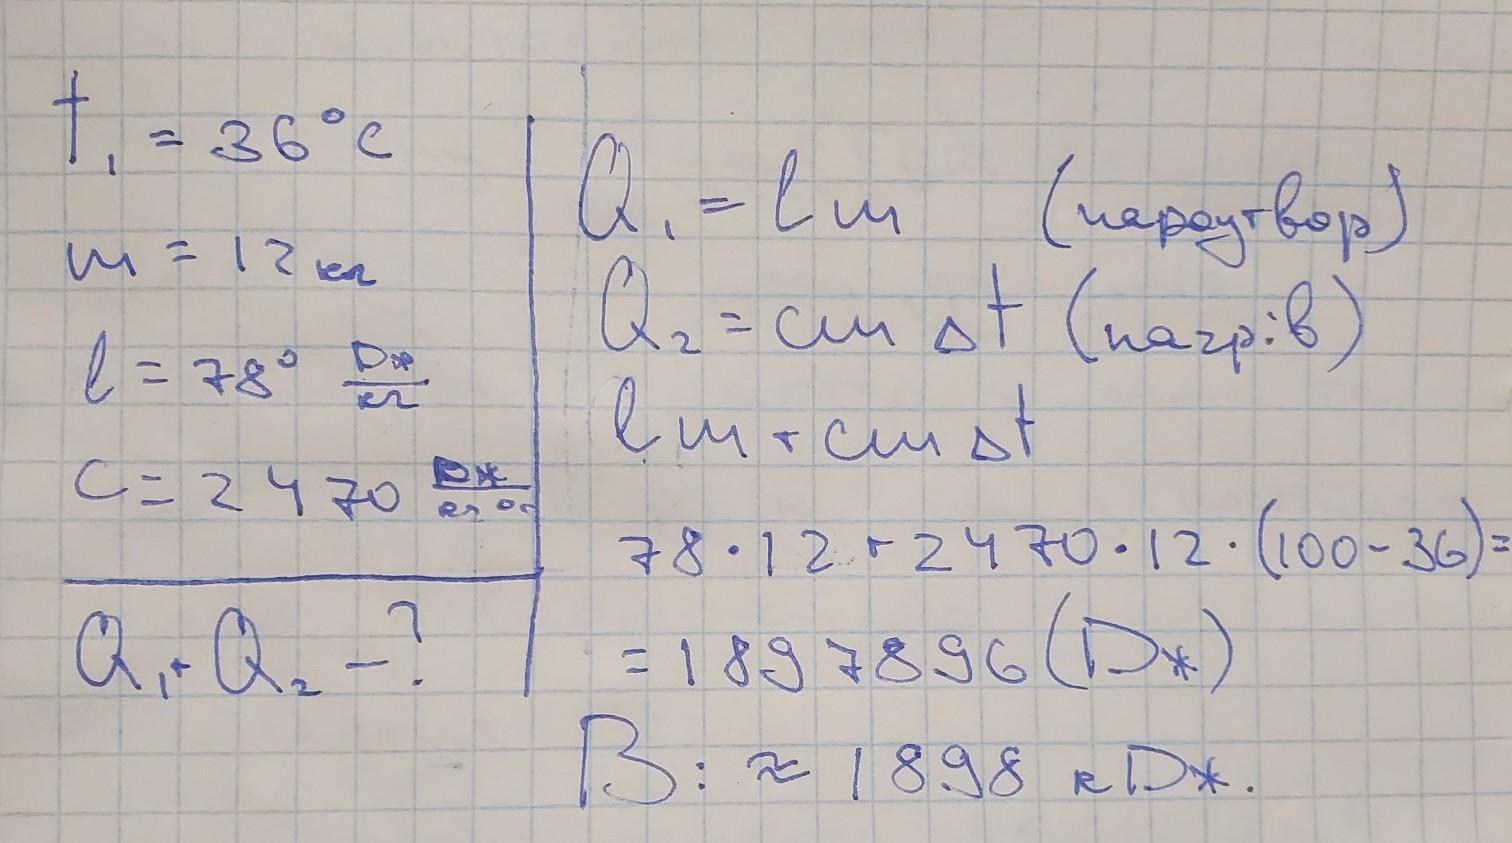 t₁ = 36°C
m = 12 кг
l = 78° Дж/кг
C = 2470 Дж/кг °C
Q₁ + Q₂ – ?
Q₁ = lm (пароутвор)
Q₂ = cm Δt (нагрів)
lm + cm Δt
78 · 12 + 2470 · 12 · (100 - 36) =
= 1897896 (Дж)
В: ≈ 1898 кДж.